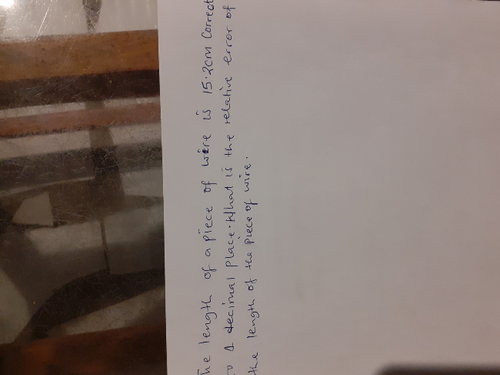 The length of a piece of wire is 15.2cm Correct
to 1 decimal place. What is the relative error of
the length of the piece of wire.